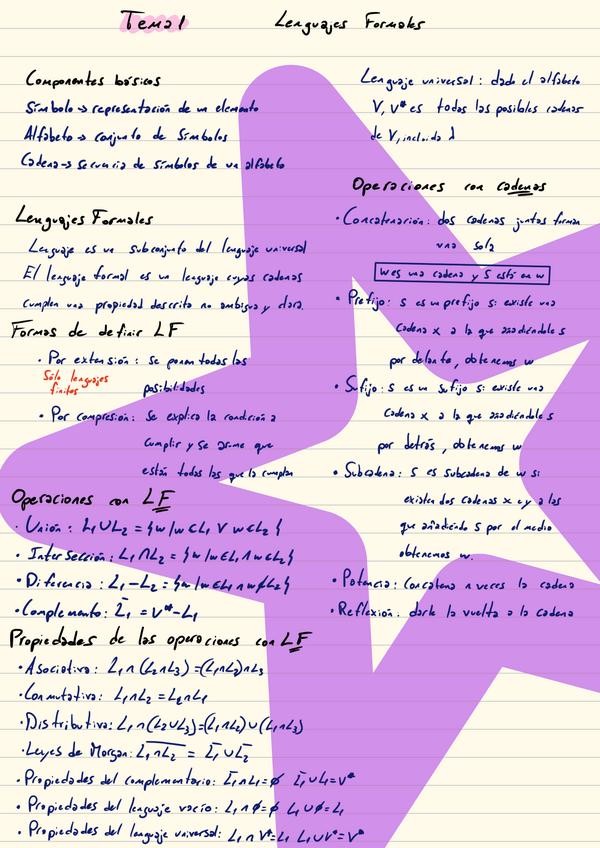 Tema 1 Lenguajes Formales
Componentes básicos
Símbolo → representación de un elemento
Alfabeto → conjunto de símbolos
Cadena → secuencia de símbolos de un alfabeto
Lenguajes Formales
Lenguaje es un subconjunto del lenguaje universal
El lenguaje formal es un lenguaje cuyas cadenas
cumplen una propiedad descrita no ambigua y clara.
Formas de definir LF
· Por extensión: se ponen todas las
Sólo lenguajes
finitos
posibilidades
· Por compresión: se explica la condición a
cumplir y se asume que
están todas las que la cumplan
Operaciones con LF
· Unión: L₁∪L₂ = {w/w∈L₁ ∨ w∈L₂}
· Intersección: L₁∩L₂ = {w/w∈L₁ ∧ w∈L₂}
· Diferencia: L₁-L₂ = {w/w∈L₁ ∧ w∉L₂}
· Complemento: L̅₁ = V*-L₁
Propiedades de las operaciones con LF
· Asociativa: L₁∩(L₂∩L₃)=(L₁∩L₂)∩L₃
· Conmutativa: L₁∩L₂ = L₂∩L₁
· Distributiva: L₁∩(L₂∪L₃)=(L₁∩L₂)∪(L₁∩L₃)
· Leyes de Morgan: L̅₁̅∩̅L̅₂̅ = L̅₁∪L̅₂
· Propiedades del complementario: L̅₁∩L₁=∅ L̅₁∪L₁=V*
· Propiedades del lenguaje vacío: L₁∩∅=∅ L₁∪∅=L₁
· Propiedades del lenguaje universal: L₁∩V*=L₁ L₁∪V*=V*
Lenguaje universal: dado el alfabeto
V, V* es todas las posibles cadenas
de V, incluida λ
Operaciones con cadenas
· Concatenación: dos cadenas juntas forman
una sola
w es una cadena y s está en w
· Prefijo: s es un prefijo si existe una
cadena x a la que añadiéndole s
por delante, obtenemos w
· Sufijo: s es un sufijo si existe una
cadena x a la que añadiéndole s
por detrás, obtenemos w
· Subcadena: s es subcadena de w si
existen dos cadenas x e y a las
que añadiendo s por el medio
obtenemos w.
· Potencia: concatena n veces la cadena
· Reflexión: darle la vuelta a la cadena